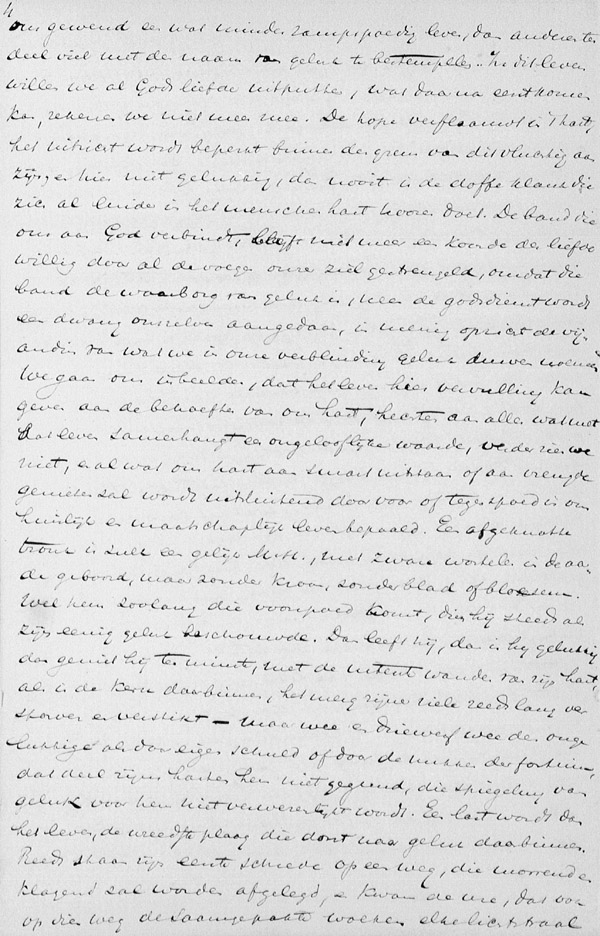 4
ons gewend een wat minder rampspoedig leven, dan anderen ten
deel viel met de naam van geluk te bestempelen. In dit leven
willen we al Gods liefde uitputten, wat daarna eens komen
kan, rekenen we niet meer mee. De hope verflaauwt in 't hart,
het uitzicht wordt beperkt binnen de grens van dit vluchtig aan
zijn, en hier niet gelukkig, dan nooit is de doffe klank die
zich al luider in het menschen hart hooren doet. De band die
ons aan God verbindt, blijft niet meer een koorde der liefde
willig door al de voegen onzer ziel gestrengeld, omdat die
band de waarborg van geluk is, neen de godsdienst wordt
een dwang onszelven aangedaan, in menig opzicht de vij-
andin van wat we in onze verblinding geluk durven noemen
We gaan ons inbeelden, dat het leven hier vervulling kan
geven aan de behoeften van ons hart, hechten aan alles wat met
dat leven samenhangt een ongelooflijke waarde, verder zien we
niet, en al wat ons hart aan smart uitstaan of aan vreugde
genieten zal wordt uitsluitend door voor of tegenspoed in ons
huislijk en maatschaplijk leven bepaald. Een afgeknotte
tronk is zulk een gelijk M.H., met zware wortelen in de aar-
de geboord, maar zonder kroon, zonder blad of bloesem.
Wel hem zoolang die voorspoed komt, dien hij steeds als
zijn eenig geluk beschouwde. Dan leeft hij, dan is hij gelukkig
dan geniet hij ten minste, met de uiterste wanden van zijn hart,
al is de kern daarbinnen, het merg zijner ziele reeds lang ver
storven en verstikt – maar wee en driewerf wee den onge
lukkige als door eigen schuld of door de nukken der fortuin,
dat deel zijns harten hem niet gegund, die spiegeling van
geluk voor hem niet verwezenlijkt wordt. Een last wordt dan
het leven, de wreedste plaag die dorst naar geluk daarbinnen.
Reeds staan zijn eerste schreden op een weg, die morrend en
klagend zal worden afgelegd, en kwam de ure, dat ook
op dien weg de saamgepakte wolken elke lichtstraal